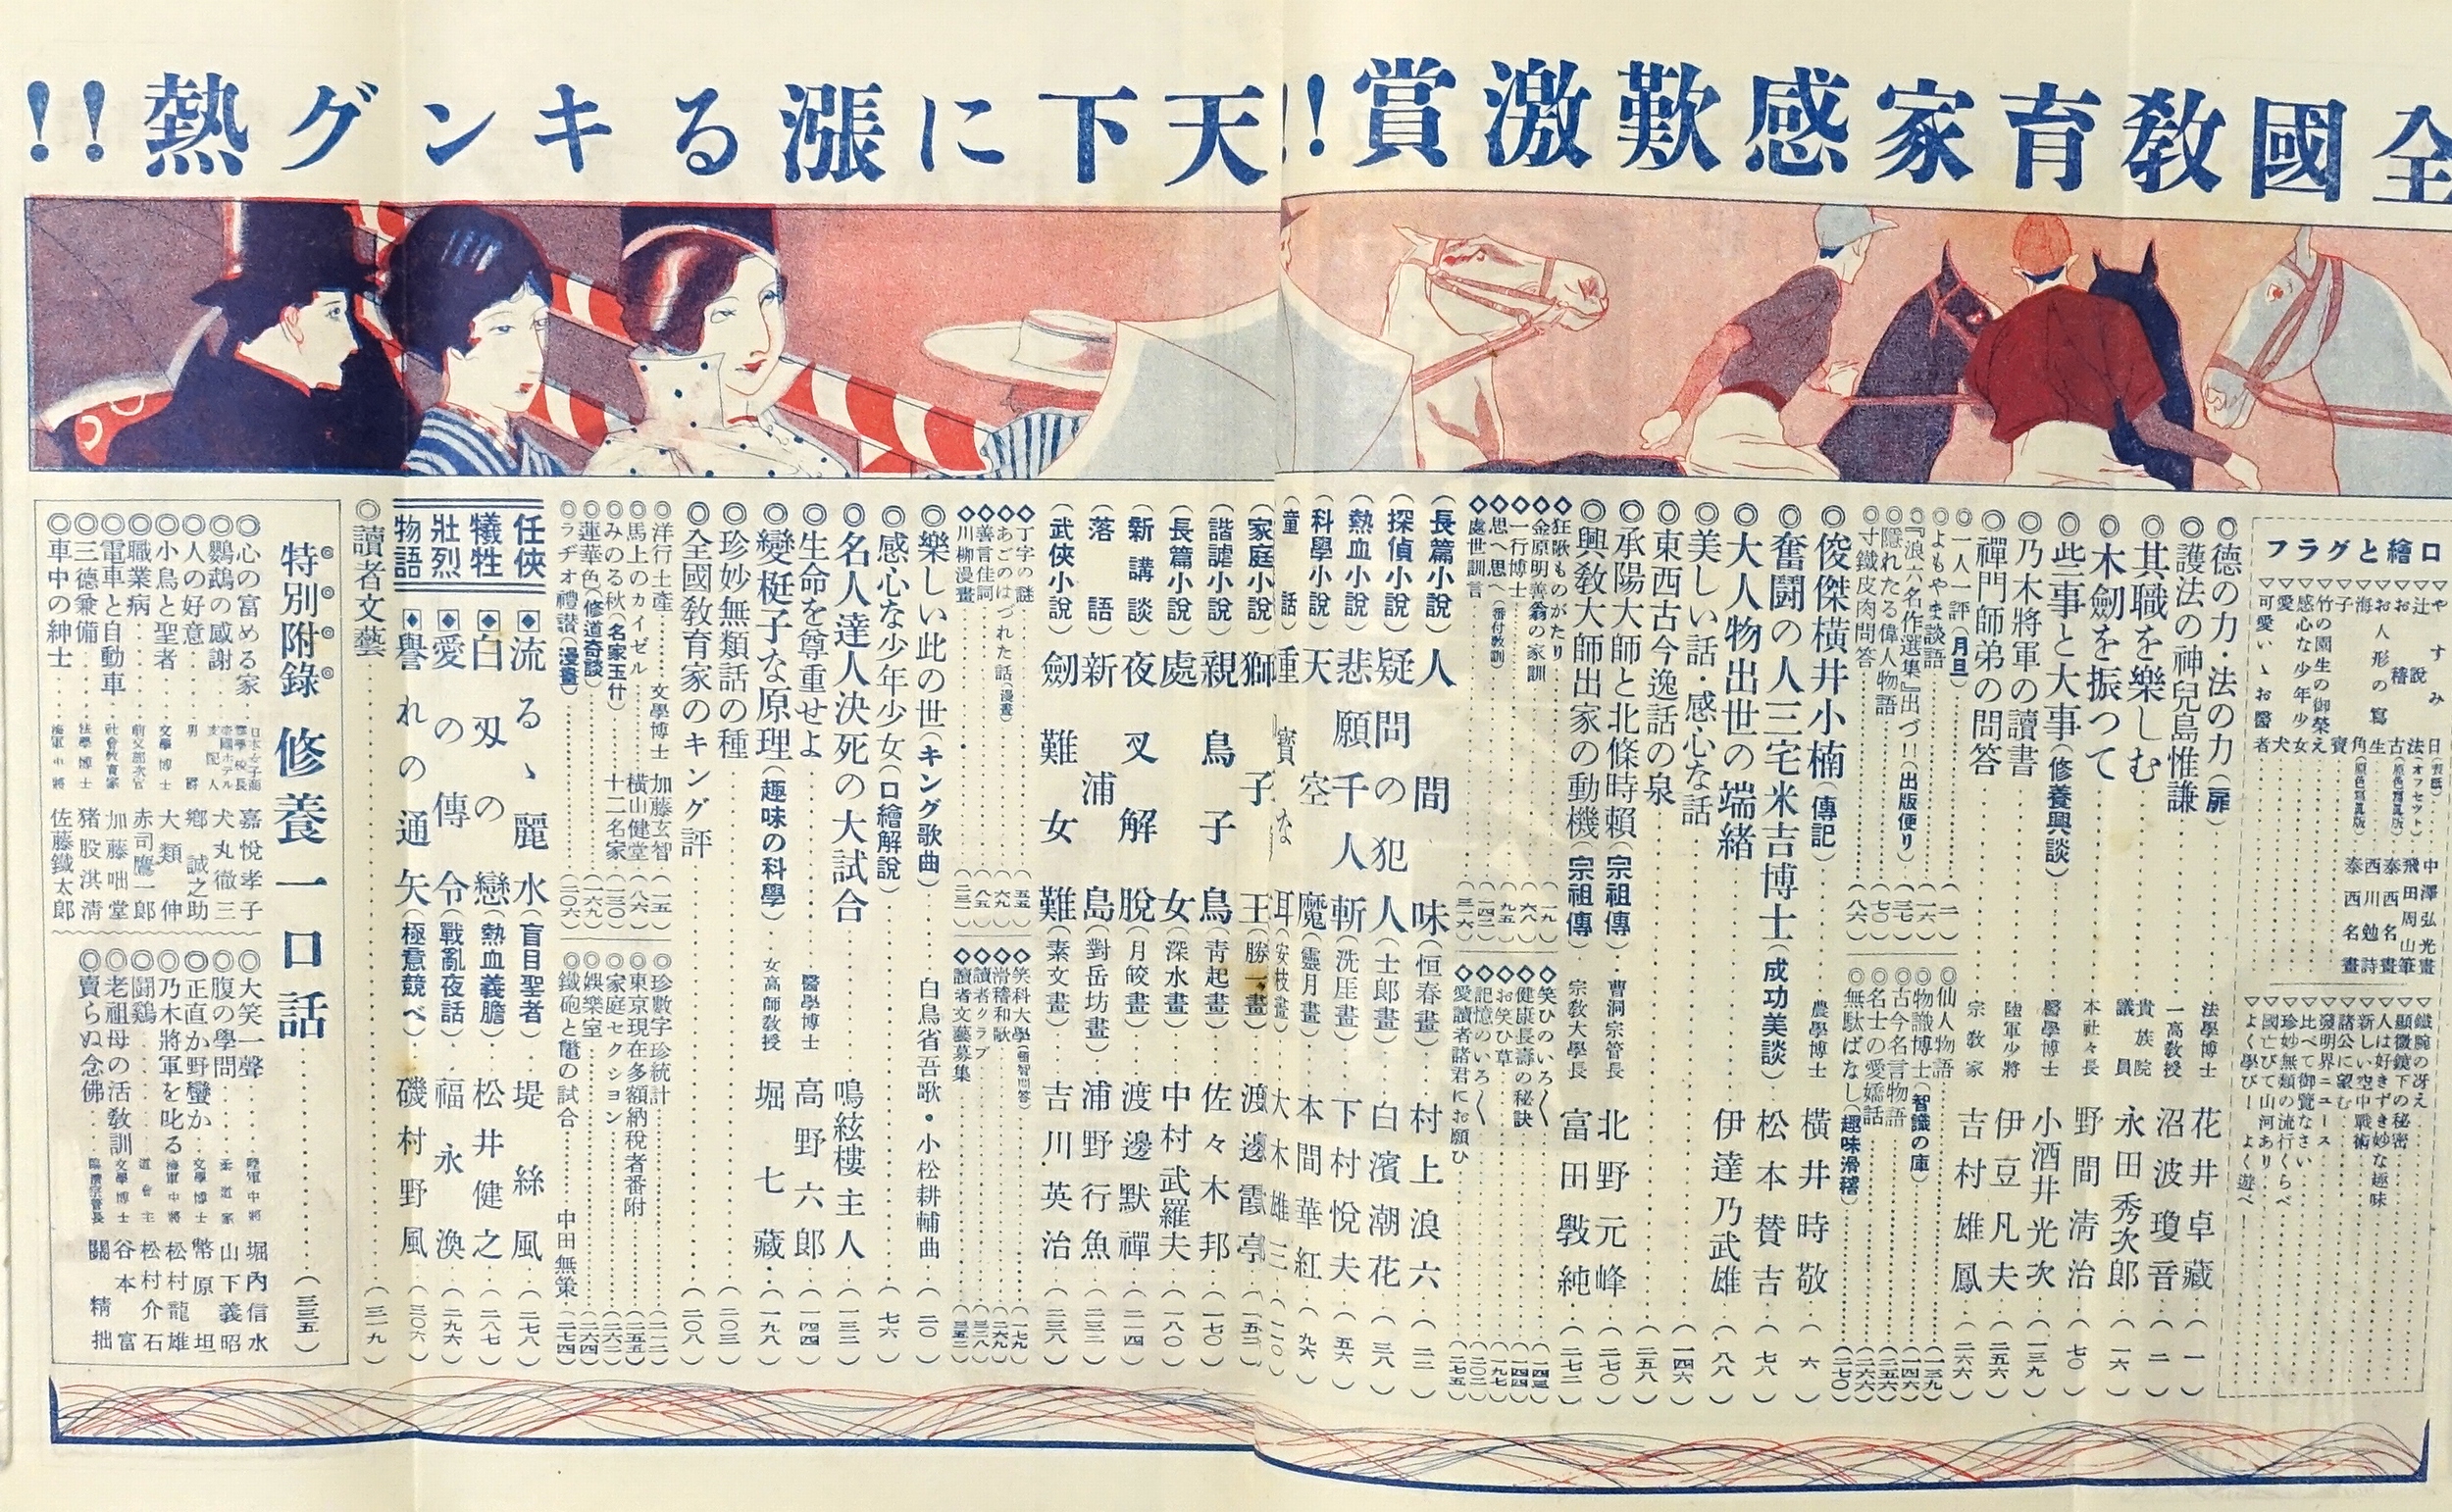 全國敎育家感歎激賞!!
天下に漲るキング熱!!
口繪とグラフ
▽やすみ日(表紙)……中澤弘光畫
▽辻說法(オフセット)……飛田周山筆
▽お稽古(原色寫眞版)……泰西名畫
▽お人形の寫生……西川勉詩
▽海角(原色寫眞版)……泰西名畫
▽子寶
▽竹の園生の御榮え
▽感心な少年少女
▽愛犬
▽可愛いゝお醫者
▽鐵腕の冴え
▽顯微鏡下の秘密
▽人は好きずき妙な趣味
▽新しい空中戰術
▽諸公に望む
▽發明界ニュース
▽比べて御覽なさい
▽珍妙無類の流行くらべ
▽國亡びて山河あり
▽よく學びーよく遊べー
◎德の力・法の力(扉)……法學博士 花井卓藏……(一)
◎護法の神兒島惟謙……一高敎授 沼波瓊音……(二)
◎其職を樂しむ……貴族院議員 永田秀次郎……(一六)
◎木劍を振つて……本社々長 野間淸治……(七〇)
◎些事と大事(修養興談)……醫學博士 小酒井光次……(一三九)
◎乃木將軍の讀書……陸軍少將 伊豆凡夫……(二五六)
◎禪門師弟の問答……宗敎家 吉村雄鳳……(二六六)
◎一人一評(月旦)……(二)
◎よもやま談語……(一六)
◎『浪六名作選集』出づ!!(出版便り)……(三七)
◎隱れたる偉人物語……(七〇)
◎寸鐵皮肉問答……(八六)
◎仙人物語……(一三九)
◎物識博士(智識の庫)……(一四六)
◎古今名言物語……(二五六)
◎名士の愛嬌話……(二六六)
◎無駄ばなし(趣味滑稽)……(二七〇)
◎俊傑橫井小楠(傳記)……農學博士 橫井時敬……(六)
◎奮鬪の人三宅米吉博士(成功美談)……松本贊吉……(七八)
◎大人物出世の端緖……伊達乃武雄……(八八)
◎美しい話・感心な話……(一四六)
◎東西古今逸話の泉……(二五八)
◎承陽大師と北條時賴(宗祖傳)……曹洞宗管長 北野元峰……(二七〇)
◎興敎大師出家の動機(宗祖傳)……宗敎大學長 富田斅純……(二七二)
◇狂歌ものがたり……(一九)
◇金原明善翁の家訓……(六八)
◇一行博士……(九五)
◇思へ思へ(番付敎訓)……(一四二)
◇處世訓言……(三一六)
◇笑ひのいろ〱……(一四三)
◇健康長壽の秘訣……(一四四)
◇お笑ひ草……(一九七)
◇記憶のいろ〱……(二〇二)
◇愛讀者諸君にお願ひ……(二七五)
(長篇小說)人間味(恒春畫)……村上浪六……(二二)
(探偵小說)疑問の犯人(士郎畫)……白濱潮花……(三八)
(熱血小說)悲願千人斬(洗厓畫)……下村悅夫……(五六)
(科學小說)天空魔(靈月畫)……本間華紅……(九六)
(童話)重寶な耳(安枝畫)……大木雄三……(一一〇)
(家庭小說)獅子王(勝一畫)……渡邊霞亭
(諧謔小說)親鳥子鳥(靑起畫)……佐々木邦……(一七〇)
(長篇小說)處女(深水畫)……中村武羅夫……(一八〇)
(新講談)夜叉解脫(月皎畫)……渡邊默禪……(二一四)
(落語)新浦島(對岳坊畫)……浦野行魚……(二三二)
(武俠小說)劍難女難(素文畫)……吉川英治……(二三八)
◇丁字の謎……(五五)
◇あごのはづれた話(漫畫)……(六九)
◇善言佳詞……(八五)
◇川柳漫畫……(二三一)
◇笑科大學(頓智問答)……(一七九)
◇滑稽和歌……(二六九)
◇讀者クラブ……(三三八)
◇讀者文藝募集……(三五二)
◎樂しい此の世(キング歌曲)……白鳥省吾歌・小松耕輔曲……(二〇)
◎感心な少年少女(口繪解說)……(七六)
◎名人達人決死の大試合……鳴絃樓主人……(一三二)
◎生命を尊重せよ……醫學博士 高野六郎……(一四四)
◎變梃子な原理(趣味の科學)……女高師敎授 堀七藏……(一九八)
◎珍妙無類話の種……(二〇三)
◎全國敎育家のキング評……(二〇八)
◎洋行土產……文學博士 加藤玄智……(一五)
◎馬上のカイゼル……橫山健堂……(八六)
◎みのる秋(名家玉什)……十二名家……(一三〇)
◎蓮華色(修道奇談)……(一六九)
◎ラヂオ禮讃(漫畫)……(二〇六)
◎珍數字珍統計……(二一二)
◎東京現在多額納稅者番附……(二五五)
◎家庭セクション……(二六二)
◎娛樂室……(二六四)
◎鐵砲と鼈の試合……中田無策……(二七四)
任俠犧牲壯烈物語
◈流るゝ麗水(盲目聖者)……堤絲風……(二七八)
◈白刄の戀(熱血義膽)……松井健之……(二八七)
◈愛の傳令(戰亂夜話)……福永渙……(二九六)
◈譽れの通矢(極意競べ)……磯村野風……(三〇六)
◎讀者文藝……(三一九)
特別附錄 修養一口話……(三三五)
◎心の富める家……日本女子商業學校長 嘉悅孝子
◎鸚鵡の感謝……帝國ホテル支配人 犬丸徹三
◎人の好意……男爵 鄕誠之助
◎小鳥と聖者……文學博士 大類伸
◎職業病……前文部次官 赤司鷹一郎
◎電車と自動車……社會敎育家 加藤咄堂
◎三德兼備……法學博士 猪股淇淸
◎車中の紳士……海軍中將 佐藤鐵太郎
◎大笑一聲……陸軍中將 堀內信水
◎腹の學問……柔道家 山下義昭
◎正直か野蠻か……文學博士 幣原坦
◎乃木將軍を叱る……海軍中將 松村龍雄
◎鬪鷄……道會主 松村介石
◎老祖母の活敎訓……文學博士 谷本富
◎賣らぬ念佛……臨濟宗管長 關精拙